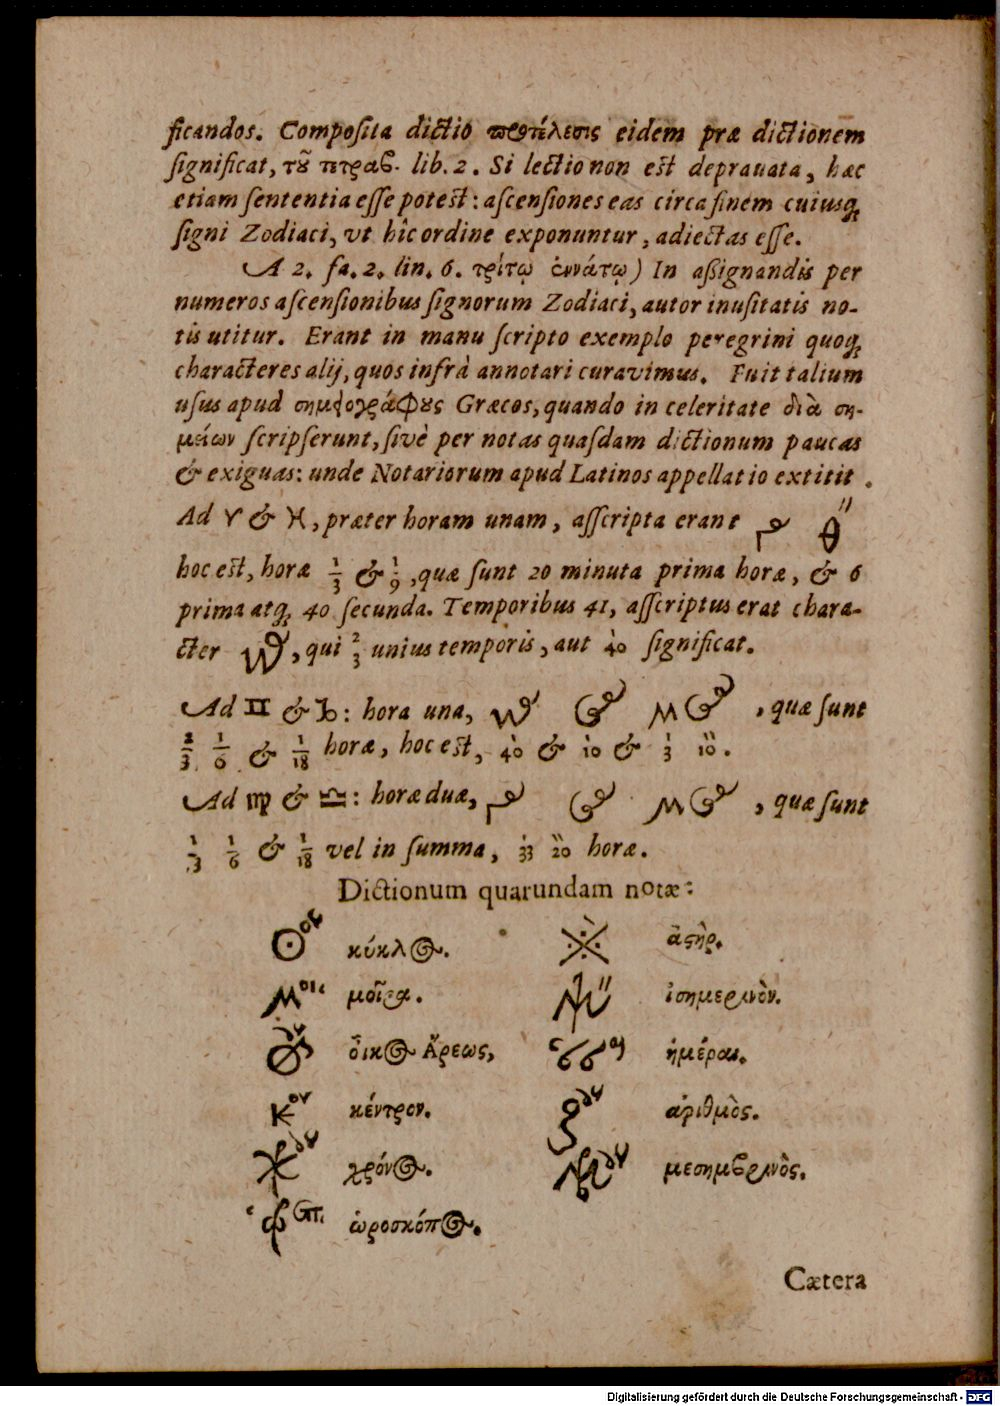 ficandos. Compoſita dictio προτέλεσις eidem præ dictionem
ſignificat, τȣ͂ πετραβ. lib. 2. Si lectio non est deprauata, hæc
etiam ſententia eſſe potest: aſcenſiones eas circa finem cuiusq́;
ſigni Zodiaci, vt hîc ordine exponuntur, adiectas eſſe.
A 2. fa. 2. lin. 6. τρίτῳ ἐννάτῳ) In aßignandis per
numeros aſcenſionibus ſignorum Zodiaci, autor inuſitatis no-
tis utitur. Erant in manu ſcripto exemplo peregrini quoq́;
characteres alij, quos infrà annotari curavimus. Fuit talium
uſus apud σημειογράφȣς Græcos, quando in celeritate διὰ ση-
μείων ſcripſerunt, ſivè per notas quaſdam dictionum paucas
& exiguas: unde Notariorum apud Latinos appellatio extitit.
Ad ♈ & ♓, præter horam unam, aſſcripta erant
hoc est, horæ 1/3 & 1/9, quæ ſunt 20 minuta prima horæ, & 6
prima atq́; 40 ſecunda. Temporibus 41, aſſcriptus erat chara-
cter , qui 2/3 unius temporis, aut 40 ſignificat.
Ad ♊ & ♑: hora una, , quæ ſunt
2/3 1/6 & 1/18 horæ, hoc est, 40 & 10 & 3 10.
Ad ♍ & ♎: horæ duæ, , quæ ſunt
1/3 1/6 & 1/18 vel in ſumma, 33 20 horæ.
Dictionum quarundam notæ:
κύκλος. ἀϛὴρ.
μοῖρα. ἰσημερινὸν.
οἶκος Ἄρεως, ἡμέραι.
κέντρον. ἀριθμὸς.
χρόνος. μεσημβρινὸς.
ὡροσκόπος.
Cætera
Digitalisierung gefördert durch die Deutsche Forschungsgemeinschaft - DFG